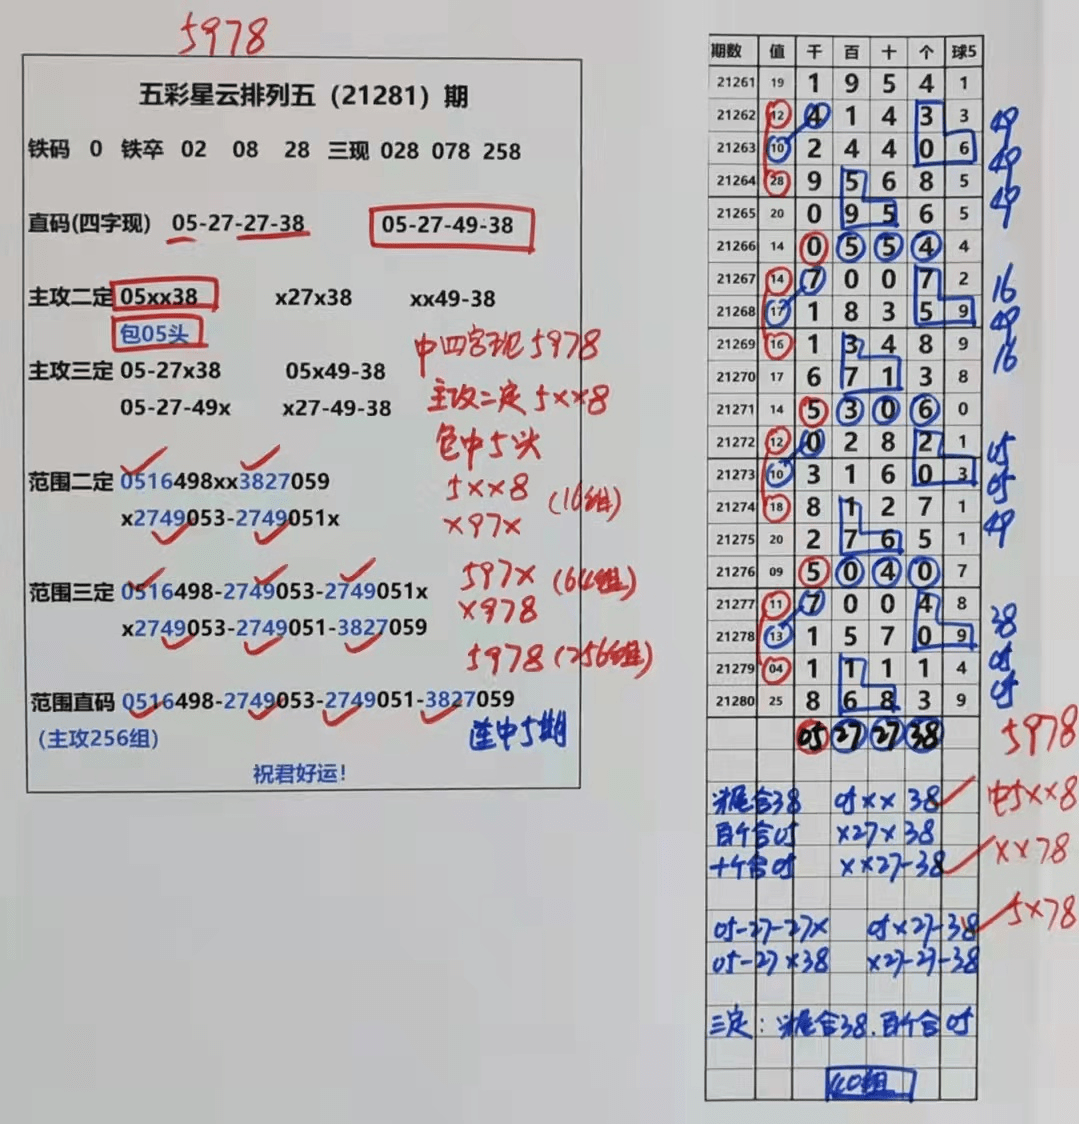 5978
五彩星云排列五（21281）期
铁码 0 铁卒 02 08 28 三现 028 078 258
直码(四字现) 05-27-27-38 05-27-49-38
主攻二定 05xx38 x27x38 xx49-38
包05头
中四字现5978
主攻三定 05-27x38 05x49-38
主攻二定5xx8
05-27-49x x27-49-38
包中5头
范围二定 0516498xx3827059
5xx8 (16组)
x2749053-2749051x
x97x
范围三定 0516498-2749053-2749051x
597x (64组)
x2749053-2749051-3827059
x978
5978 (256组)
范围直码 0516498-2749053-2749051-3827059
(主攻256组) 连中5期
祝君好运!
期数 值 千 百 十 个 球5
21261 19 1 9 5 4 1
21262 12 4 1 4 3 3 49
21263 10 2 4 4 0 6 49
21264 28 9 5 6 8 5 49
21265 20 0 9 5 6 5
21266 14 0 5 5 4 4
21267 14 7 0 0 7 2 16
21268 17 1 8 3 5 9 49
21269 16 1 3 4 8 9 16
21270 17 6 7 1 3 8
21271 14 5 3 0 6 0
21272 12 0 2 8 2 1 05
21273 10 3 1 6 0 3 05
21274 18 8 1 2 7 1 49
21275 20 2 7 6 5 1
21276 09 5 0 4 0 7
21277 11 7 0 0 4 8 38
21278 13 1 5 7 0 9 05
21279 04 1 1 1 1 4 05
21280 25 8 6 8 3 9
05 27 27 38 5978
头尾合38 05xx38 中5xx8
百个合05 x27x38
十个合05 xx27-38 xx78
05-27-27x 05x27-38 5x78
05-27x38 x27-27-38
三定：头尾合38.百个合05
40组